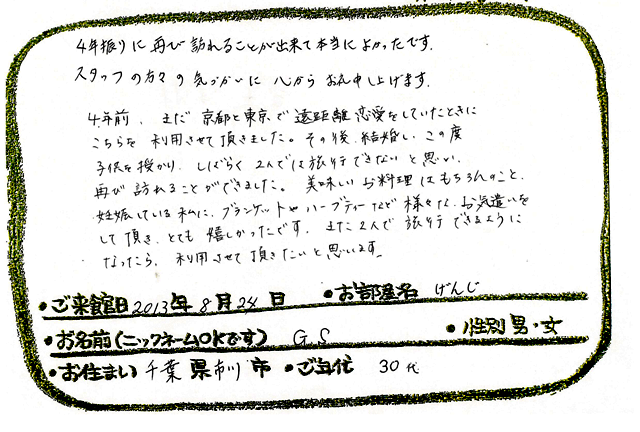 4年振りに再び訪れることが出来て本当によかったです。
スタッフの方々の気づかいに心からお礼申し上げます。
4年前、まだ京都と東京で遠距離恋愛をしていたときに
こちらを利用させて頂きました。その後、結婚し、この度
子供を授かり、しばらく2人では旅行できないと思い、
再び訪れることができました。美味しいお料理はもちろんのこと、
妊娠している私に、ブランケットやハーブティーなど様々な、お気遣いを
して頂き、とても嬉しかったです。また2人で旅行できるように
なったら、利用させて頂きたいと思います。
・ご来館日 2013年 8月 24日 ・お部屋名 げんじ
・お名前(ニックネームOKです) G.S ・性別 男・女
・お住まい 千葉県市川市 ・ご年代 30代